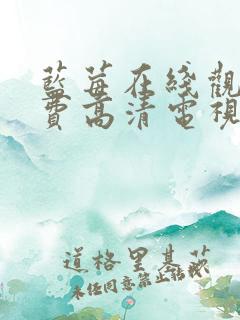 藍莓在綫觀
費高清電視
道格里基荻
未任同意禁止转载